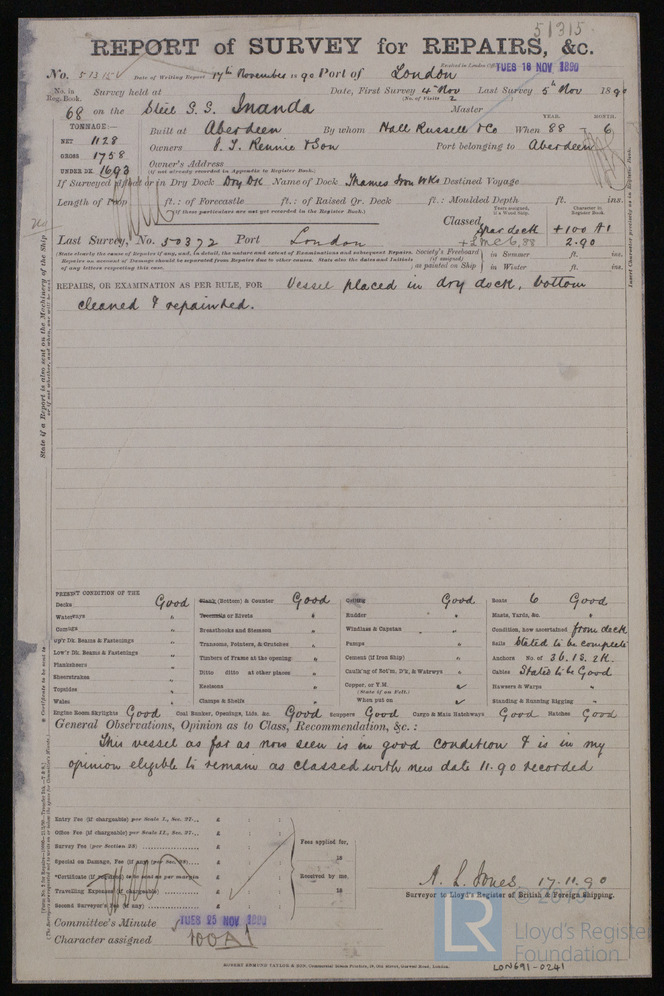 51315
REPORT of SURVEY for REPAIRS, &c.
No. 51315 Date of Writing Report 17th November 1890 Port of London
TUES 18 NOV 1890
No. in Reg. Book. Survey held at Date, First Survey 4th Nov Last Survey 5th Nov 1890
(No. of Visits 2
68 on the Steel S.S. Inanda Master
TONNAGE:—
NETT 1128
GROSS 1758
UNDER DK. 1693
Built at Aberdeen By whom Hall Russell & Co When 88 - 6
YEAR. MONTH.
Owners J. T. Rennie & Son Port belonging to Aberdeen
Owner's Address
(if not already recorded in Appendix to Register Book.)
If Surveyed Afloat or in Dry Dock Dry Dk Name of Dock Thames Iron Wks Destined Voyage
Length of Poop ft.: of Forecastle ft.: of Raised Qr. Deck ft.: Moulded Depth ft. ins.
(if these particulars are not yet recorded in the Register Book.)
Classed Spar deck +100 A1
+LMC 6,88 2.90
Last Survey, No. 50372 Port London
Society's Freeboard (if assigned) as painted on Ship in Summer ft. ins.
in Winter ft. ins.
REPAIRS, OR EXAMINATION AS PER RULE, FOR Vessel placed in dry dock, bottom
cleaned & repainted.
PRESENT CONDITION OF THE
Decks Good
Waterways "
Comings "
Up'r Dk. Beams & Fastenings "
Low'r Dk. Beams & Fastenings "
Planksheers "
Sheerstrakes "
Topsides "
Wales "
Plank (Bottom) & Counter Good
Treenails or Rivets "
Breasthooks and Stemson "
Transoms, Pointers, & Crutches "
Timbers of Frame at the opening "
Ditto ditto at other places "
Keelsons "
Clamps & Shelfs "
Ceiling Good
Rudder "
Windlass & Capstan "
Pumps "
Cement (if Iron Ship) "
Caulk'ng of Bot'm, D'k, & Watrwys "
Copper, or Y.M.
(State if on Felt.)
When put on
Boats 6 Good
Masts, Yards, &c. "
Condition, how ascertained from deck
Sails Stated to be complete
Anchors No. of 3b. 1s. 2k.
Cables Stated to be Good
Hawsers & Warps "
Standing & Running Rigging "
Engine Room Skylights Good Coal Bunker, Openings, Lids, &c. Good Scuppers Good Cargo & Main Hatchways Good Hatches Good
General Observations, Opinion as to Class, Recommendation, &c.:
This vessel as far as now seen is in good condition & is in my
opinion eligible to remain as classed with new date 11.90 recorded
Entry Fee (if chargeable) per Scale I., Sec. 27... £ : :
Office Fee (if chargeable) per Scale II., Sec. 27... £ : :
Survey Fee (per Section 28) £ : :
Special on Damage, Fee (if any) (per Sec. 28) £ : :
*Certificate (if required) to be sent as per margin
Travelling Expenses (if chargeable) £ : :
Second Surveyor's Fee (if any) £ : :
Fees applied for,
18
Received by me,
18
A. L. Jones 17.11.90
Surveyor to Lloyd's Register of British & Foreign Shipping.
Committee's Minute TUES 25 NOV 1890
Character assigned 100A1
© 2019
LR
Lloyd's Register
Foundation
LON691-0241